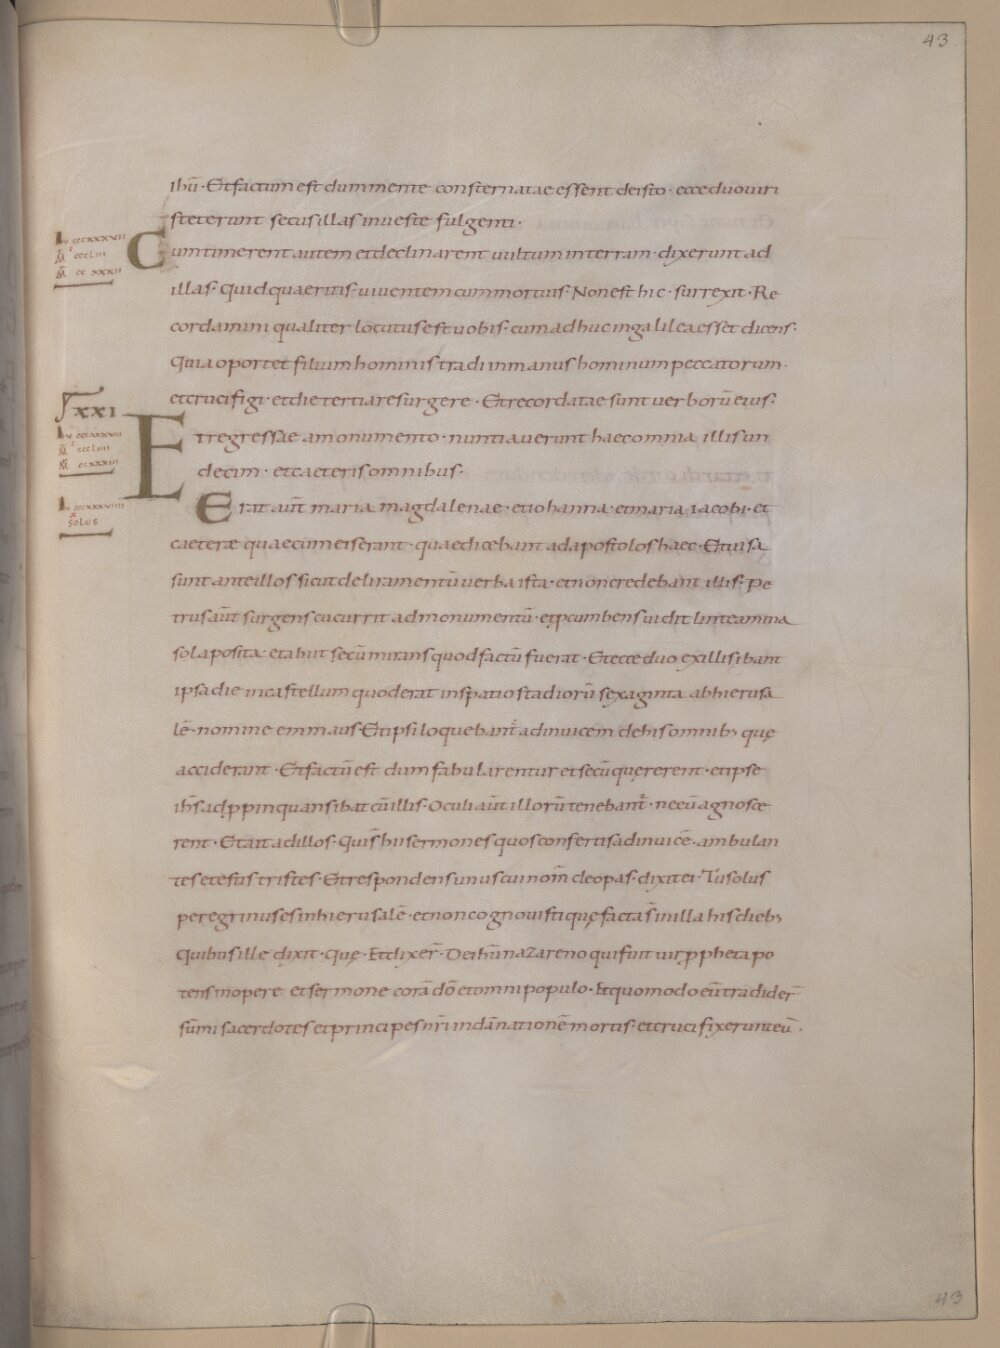 43
ihū · Et factum est dum mente consternatae essent deisto · ecce duo uiri
steterunt secus illas in ueste fulgenti ·
Cum timerent autem et declinarent uultum in terram · dixerunt ad
illas · Quid quaeritis uiuentem cum mortuis · Non est hic · surrexit · Re
cordamini qualiter locutus est uobis · cum adhuc in galilea esset dicens ·
Quia oportet filium hominis tradi in manus hominum peccatorum ·
et crucifigi · et die tertia resurgere · Et recordatae sunt uerborū eius ·
XXI
Et regressae a monumento · nuntiauerunt haec omnia illis un
decim · et caeteris omnibus ·
Erat aūt maria magdalenae · et iohanna · et maria iacobi · et
caeterae quae cum eis erant · quae dicebant ad apostolos haec · Et uisa
sunt ante illos sicut deliramentū uerba ista · et non credebant illis · Pe
trus aūt surgens cucurrit ad monumentū · et pcumbens uidit linteamina
sola posita · et abiit secū mirans quod factū fuerat · Et ecce duo ex illis ibant
ipsa die in castellum quod erat in spatio stadiorū sexaginta ab hierusa
lē · nomine emmaus · Et ipsi loquebant ad inuicem de his omnib; quę
acciderant · Et factū est dum fabularentur et secū quęrerent · et ipse
ihs adppinquans ibat cū illis · Oculi aūt illorū tenebant · ne eū agnosce
rent · Et ait ad illos · Qui s̄ hii sermones quos confertis ad inuicē · ambulan
tes et estis tristes · Et respondens unus cui nom̄ cleopas · dixit ei · Tu solus
peregrinus es in hierusalē · et non cognouisti quę facta s̄ in illa his dieb;
Quibus ille dixit · Quę · Et dixer̄ · De ihū nazareno qui fuit uir ppheta po
tens in opere et sermone corā dō et omni populo · Et quomodo eū tradider̄
sūmi sacerdotes et principes nr̄i in dānationē mortis · et crucifixerunt eū ·
SOLUS
43